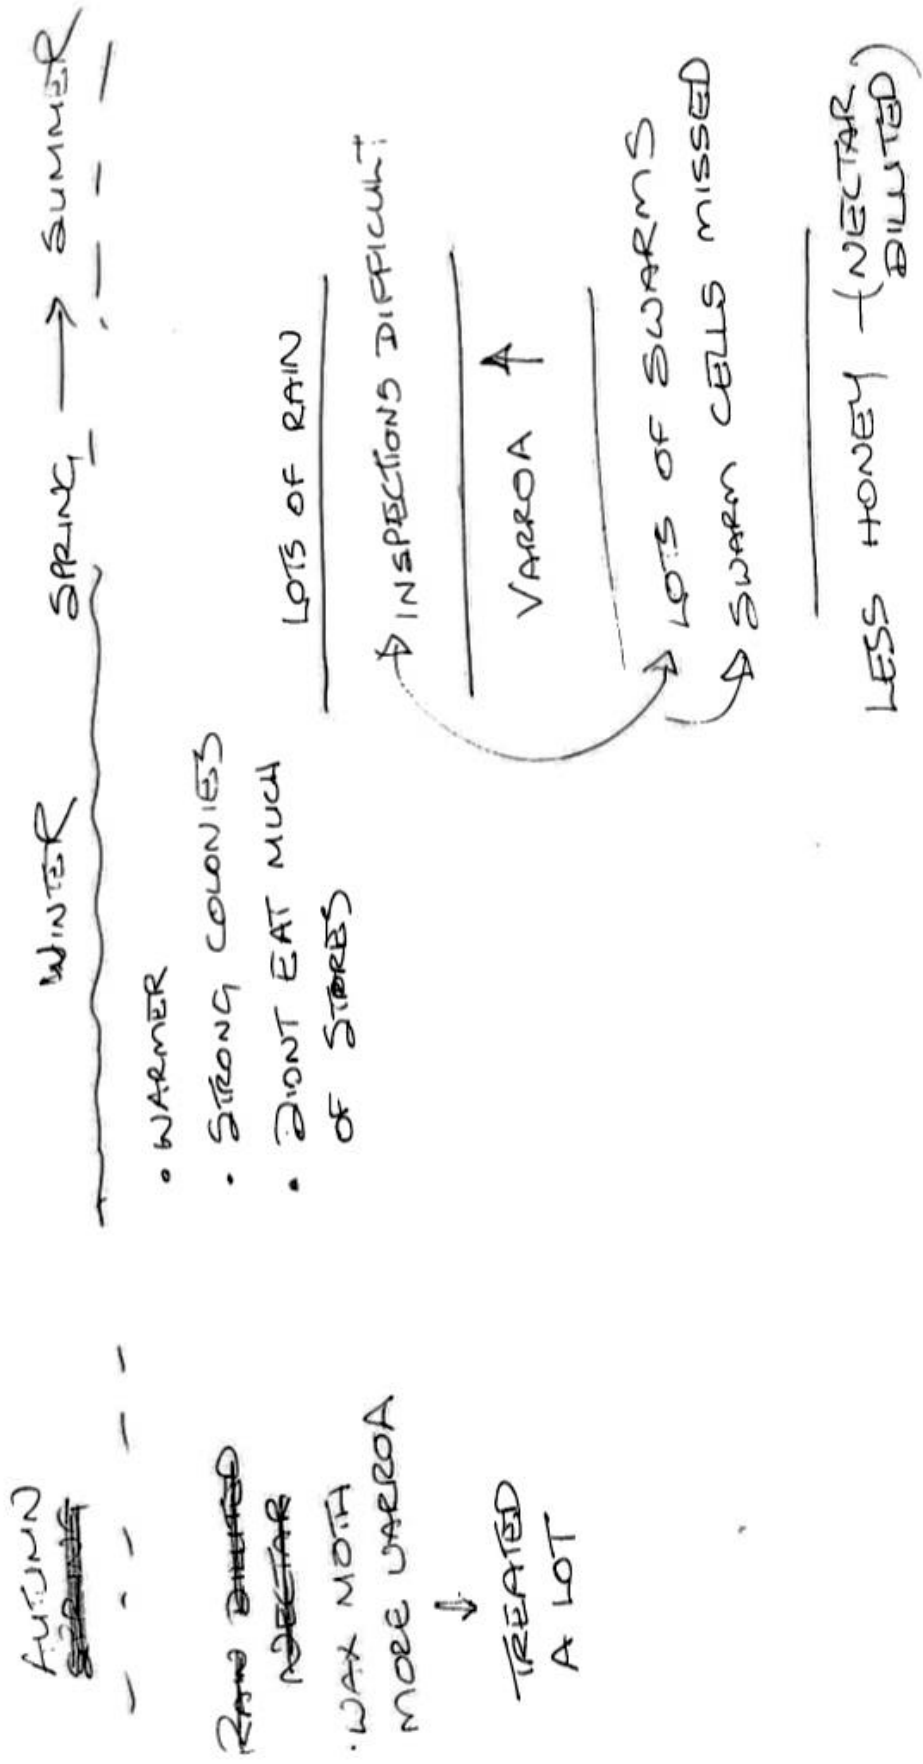 AUTUMN
SPRING
RAIN DILUTED
NECTAR
• WAX MOTH
MORE VARROA
↓
TREATED
A LOT
WINTER
• WARMER
• STRONG COLONIES
• DIDNT EAT MUCH
OF STORES
SPRING → SUMMER
LOTS OF RAIN
INSPECTIONS DIFFICULT
VARROA ↑
LOTS OF SWARMS
SWARM CELLS MISSED
LESS HONEY - (NECTAR
DILUTED)